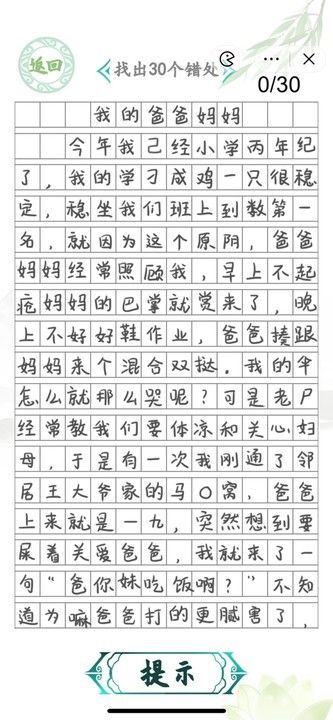 返回
找出30个错处
0/30
我的爸爸妈妈
今年我己经小学丙年纪
了，我的学刁成鸡一只很稳
定，稳坐我们班上到数第一
名，就因为这个原阴，爸爸
妈妈经常照顾我，早上不起
疮妈妈的巴掌就觉来了，晚
上不好好鞋作业，爸爸揍跟
妈妈来个混合双挞．我的命
怎么就那么哭呢？可是老尸
经常教我们要体凉和关心妇
母，于是有一次我刚通了邻
居王大爷家的马〇窝，爸爸
上来就是一九，突然想到要
尿着关爱爸爸，我就来了一
句“爸你妹吃饭啊？”不知
道为嘛爸爸打的更臓害了，
提示